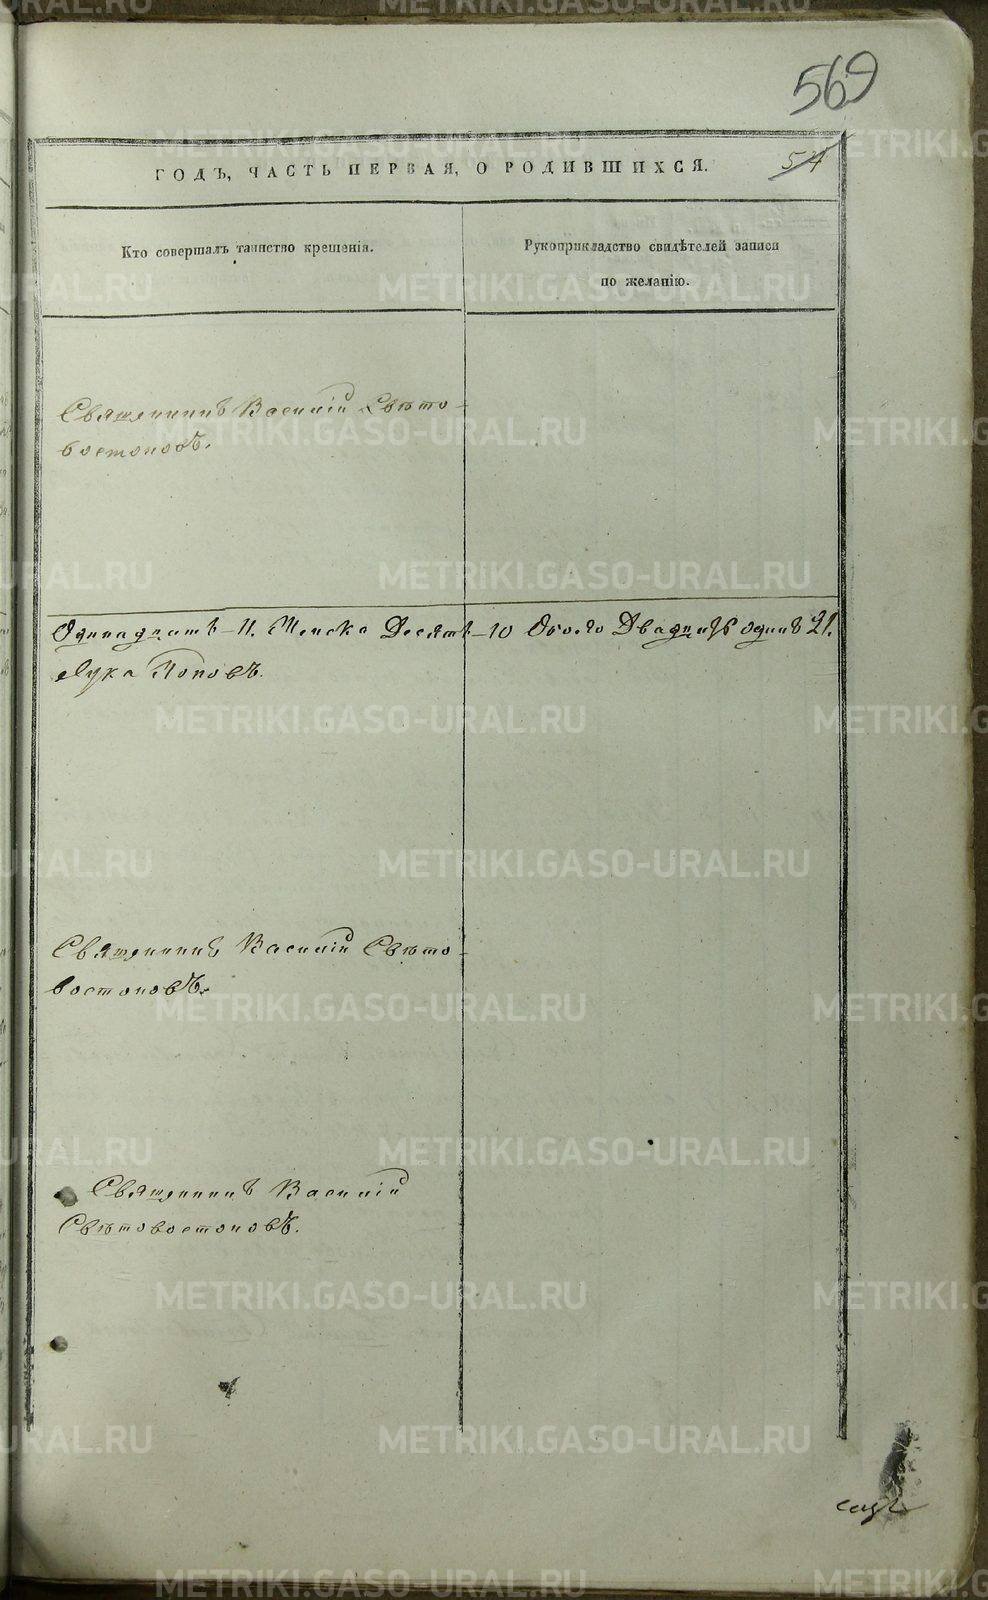 569
54
ГОДЪ, ЧАСТЬ ПЕРВАЯ, О РОДИВШИХСЯ.
Кто совершалъ таинство крещенія.
Рукоприкладство свидѣтелей записи
по желанію.
Священникъ Василій Свѣто-
востоковъ.
Одинадцать - 11. Женска Десять - 10 Обоего Двадцать одинъ 21.
Лука Поповъ.
Священникъ Василій Свѣто-
востоковъ.
Священникъ Василій
Свѣтовостоковъ.
METRIKI.GASO-URAL.RU